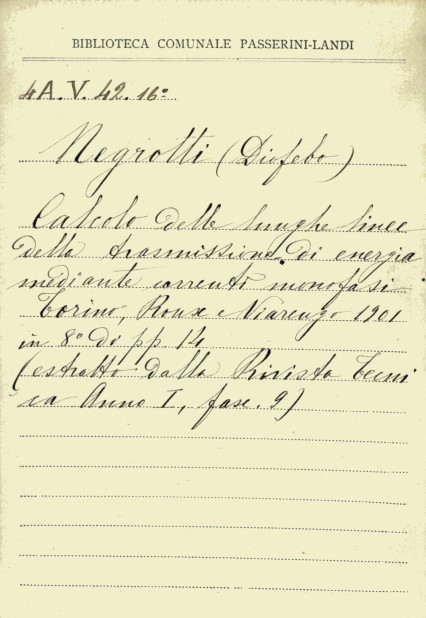 BIBLIOTECA COMUNALE PASSERINI-LANDI
4A.V. 42. 16º
Negrotti (Diofebo)
Calcolo delle lunghe linee
della trasmissione di energia
mediante correnti monofasi
Torino, Roux e Viarengo 1901
in 8º di pp 14
(estratto dalla Rivista Tecni
ca Anno I, fasc. 9)